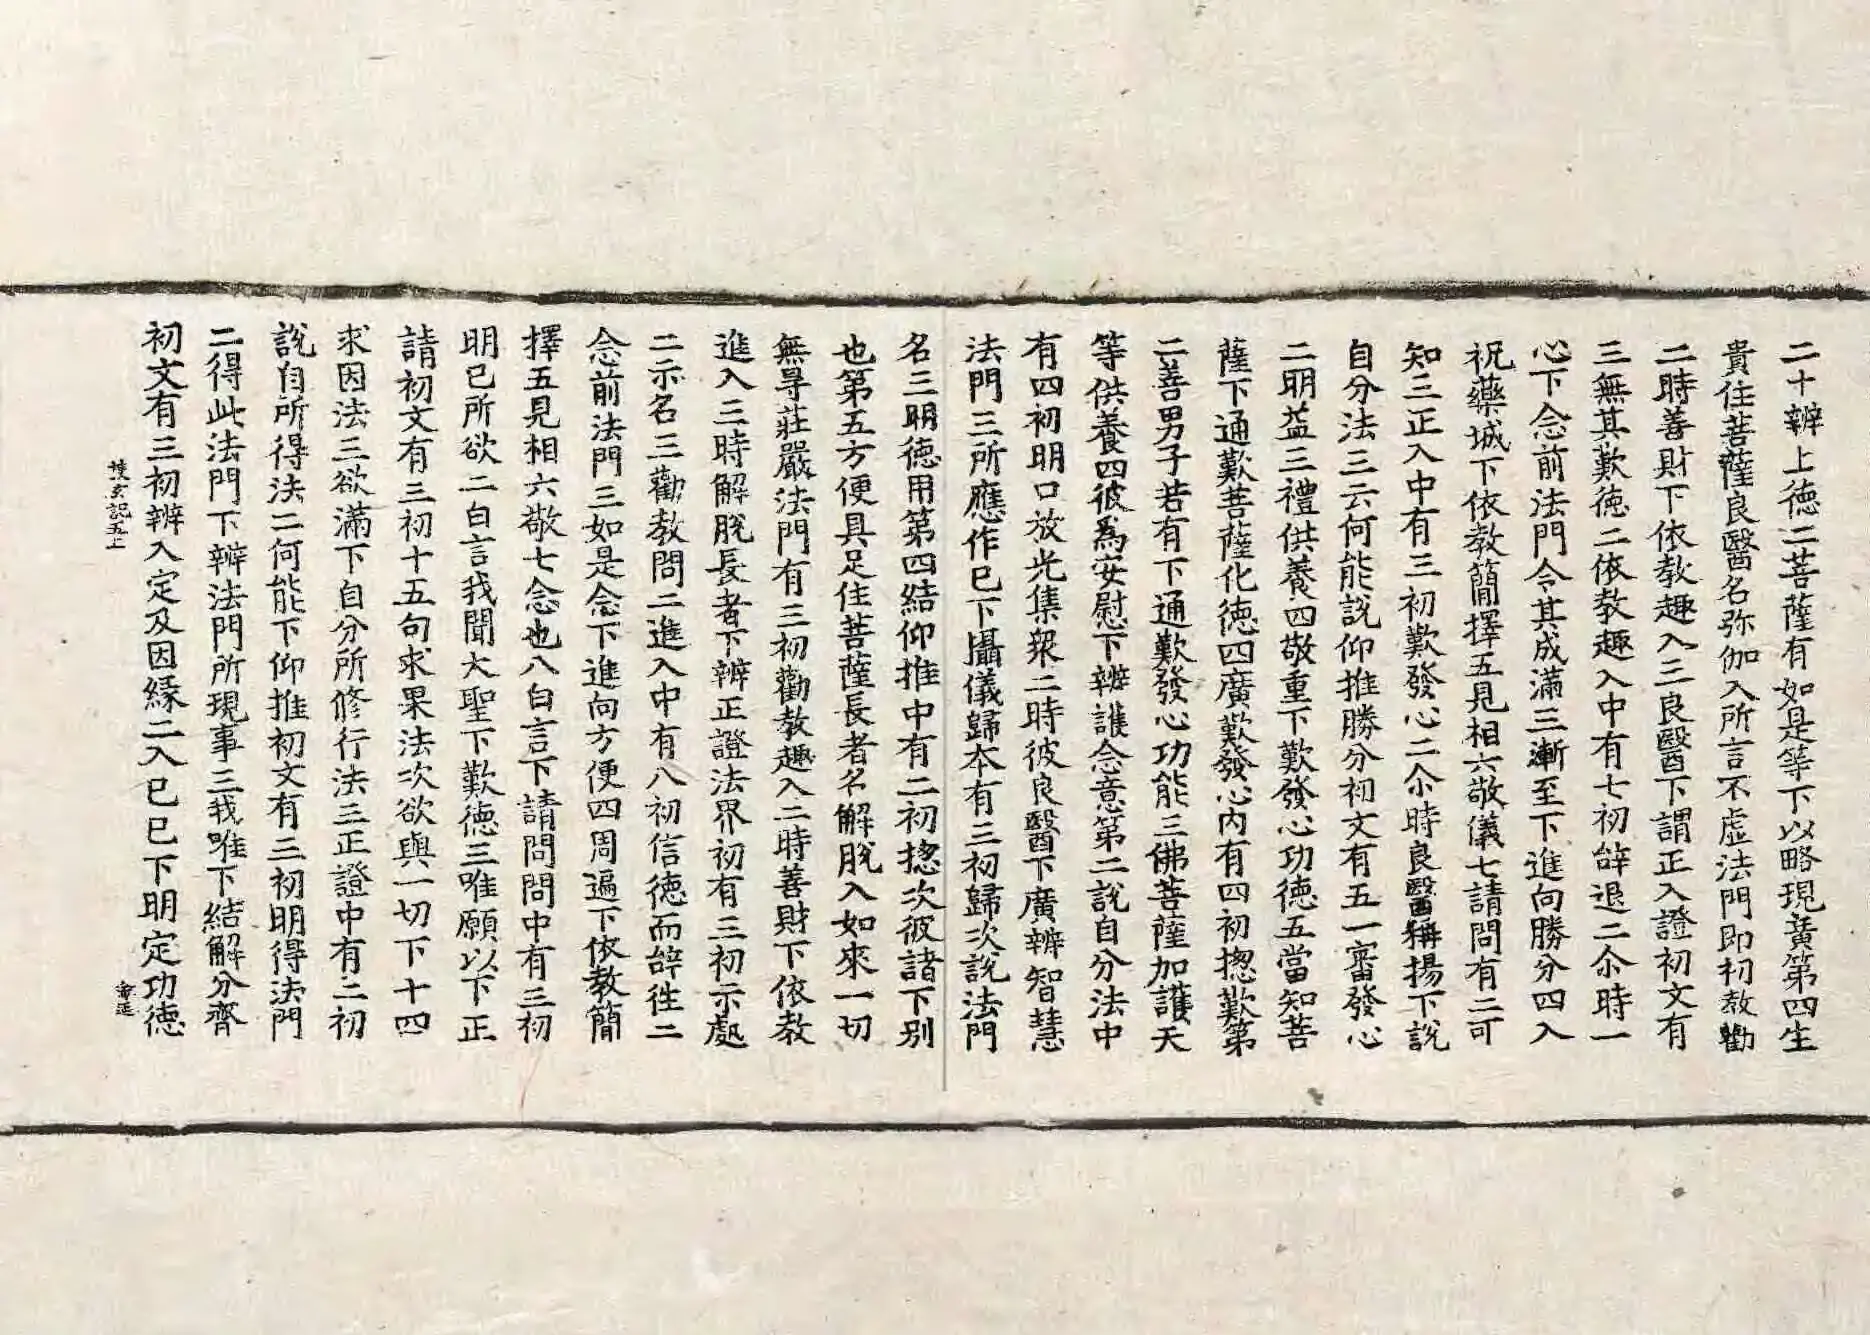 二十辨上德二菩薩有如是等下以略現廣第四生
貴住菩薩良醫名弥伽入所言不虛法門即初教勸
二時善財下依教趣入三良醫下謂正入證初文有
三無其歎德二依教趣入中有七初辞退二尒時一
心下念前法門令其成滿三漸至下進向勝分四入
祝藥城下依教簡擇五見相六敬儀七請問有二可
知三正入中有三初歎發心二尒時良醫稱揚下說
自分法三云何能說仰推勝分初文有五一審發心
二明益三禮供養四敬重下歎發心功德五當知菩
薩下通歎菩薩化德四廣歎發心內有四初揔歎第
二善男子若有下通歎發心功能三佛菩薩加護天
等供養四彼為安慰下辨護念意第二說自分法中
有四初明口放光集衆二時彼良醫下廣辨智慧
法門三所應作已下攝儀歸本有三初歸次說法門
名三明德用第四結仰推中有二初揔次彼諸下别
也第五方便具足住菩薩長者名解脫入如來一切
無㝵莊嚴法門有三初勸教趣入二時善財下依教
進入三時解脫長者下辨正證法界初有三初示處
二示名三勸教問二進入中有八初信德而辞徃二
念前法門三如是念下進向方便四周遍下依教簡
擇五見相六敬七念也八白言下請問問中有三初
明已所欲二白言我聞大聖下歎德三唯願以下正
請初文有三初十五句求果法次欲與一切下十四
求因法三欲滿下自分所修行法三正證中有二初
說自所得法二何能下仰推初文有三初明得法門
二得此法門下辨法門所現事三我唯下結解分齊
初文有三初辨入定及因緣二入已已下明定功德
搜玄記五上